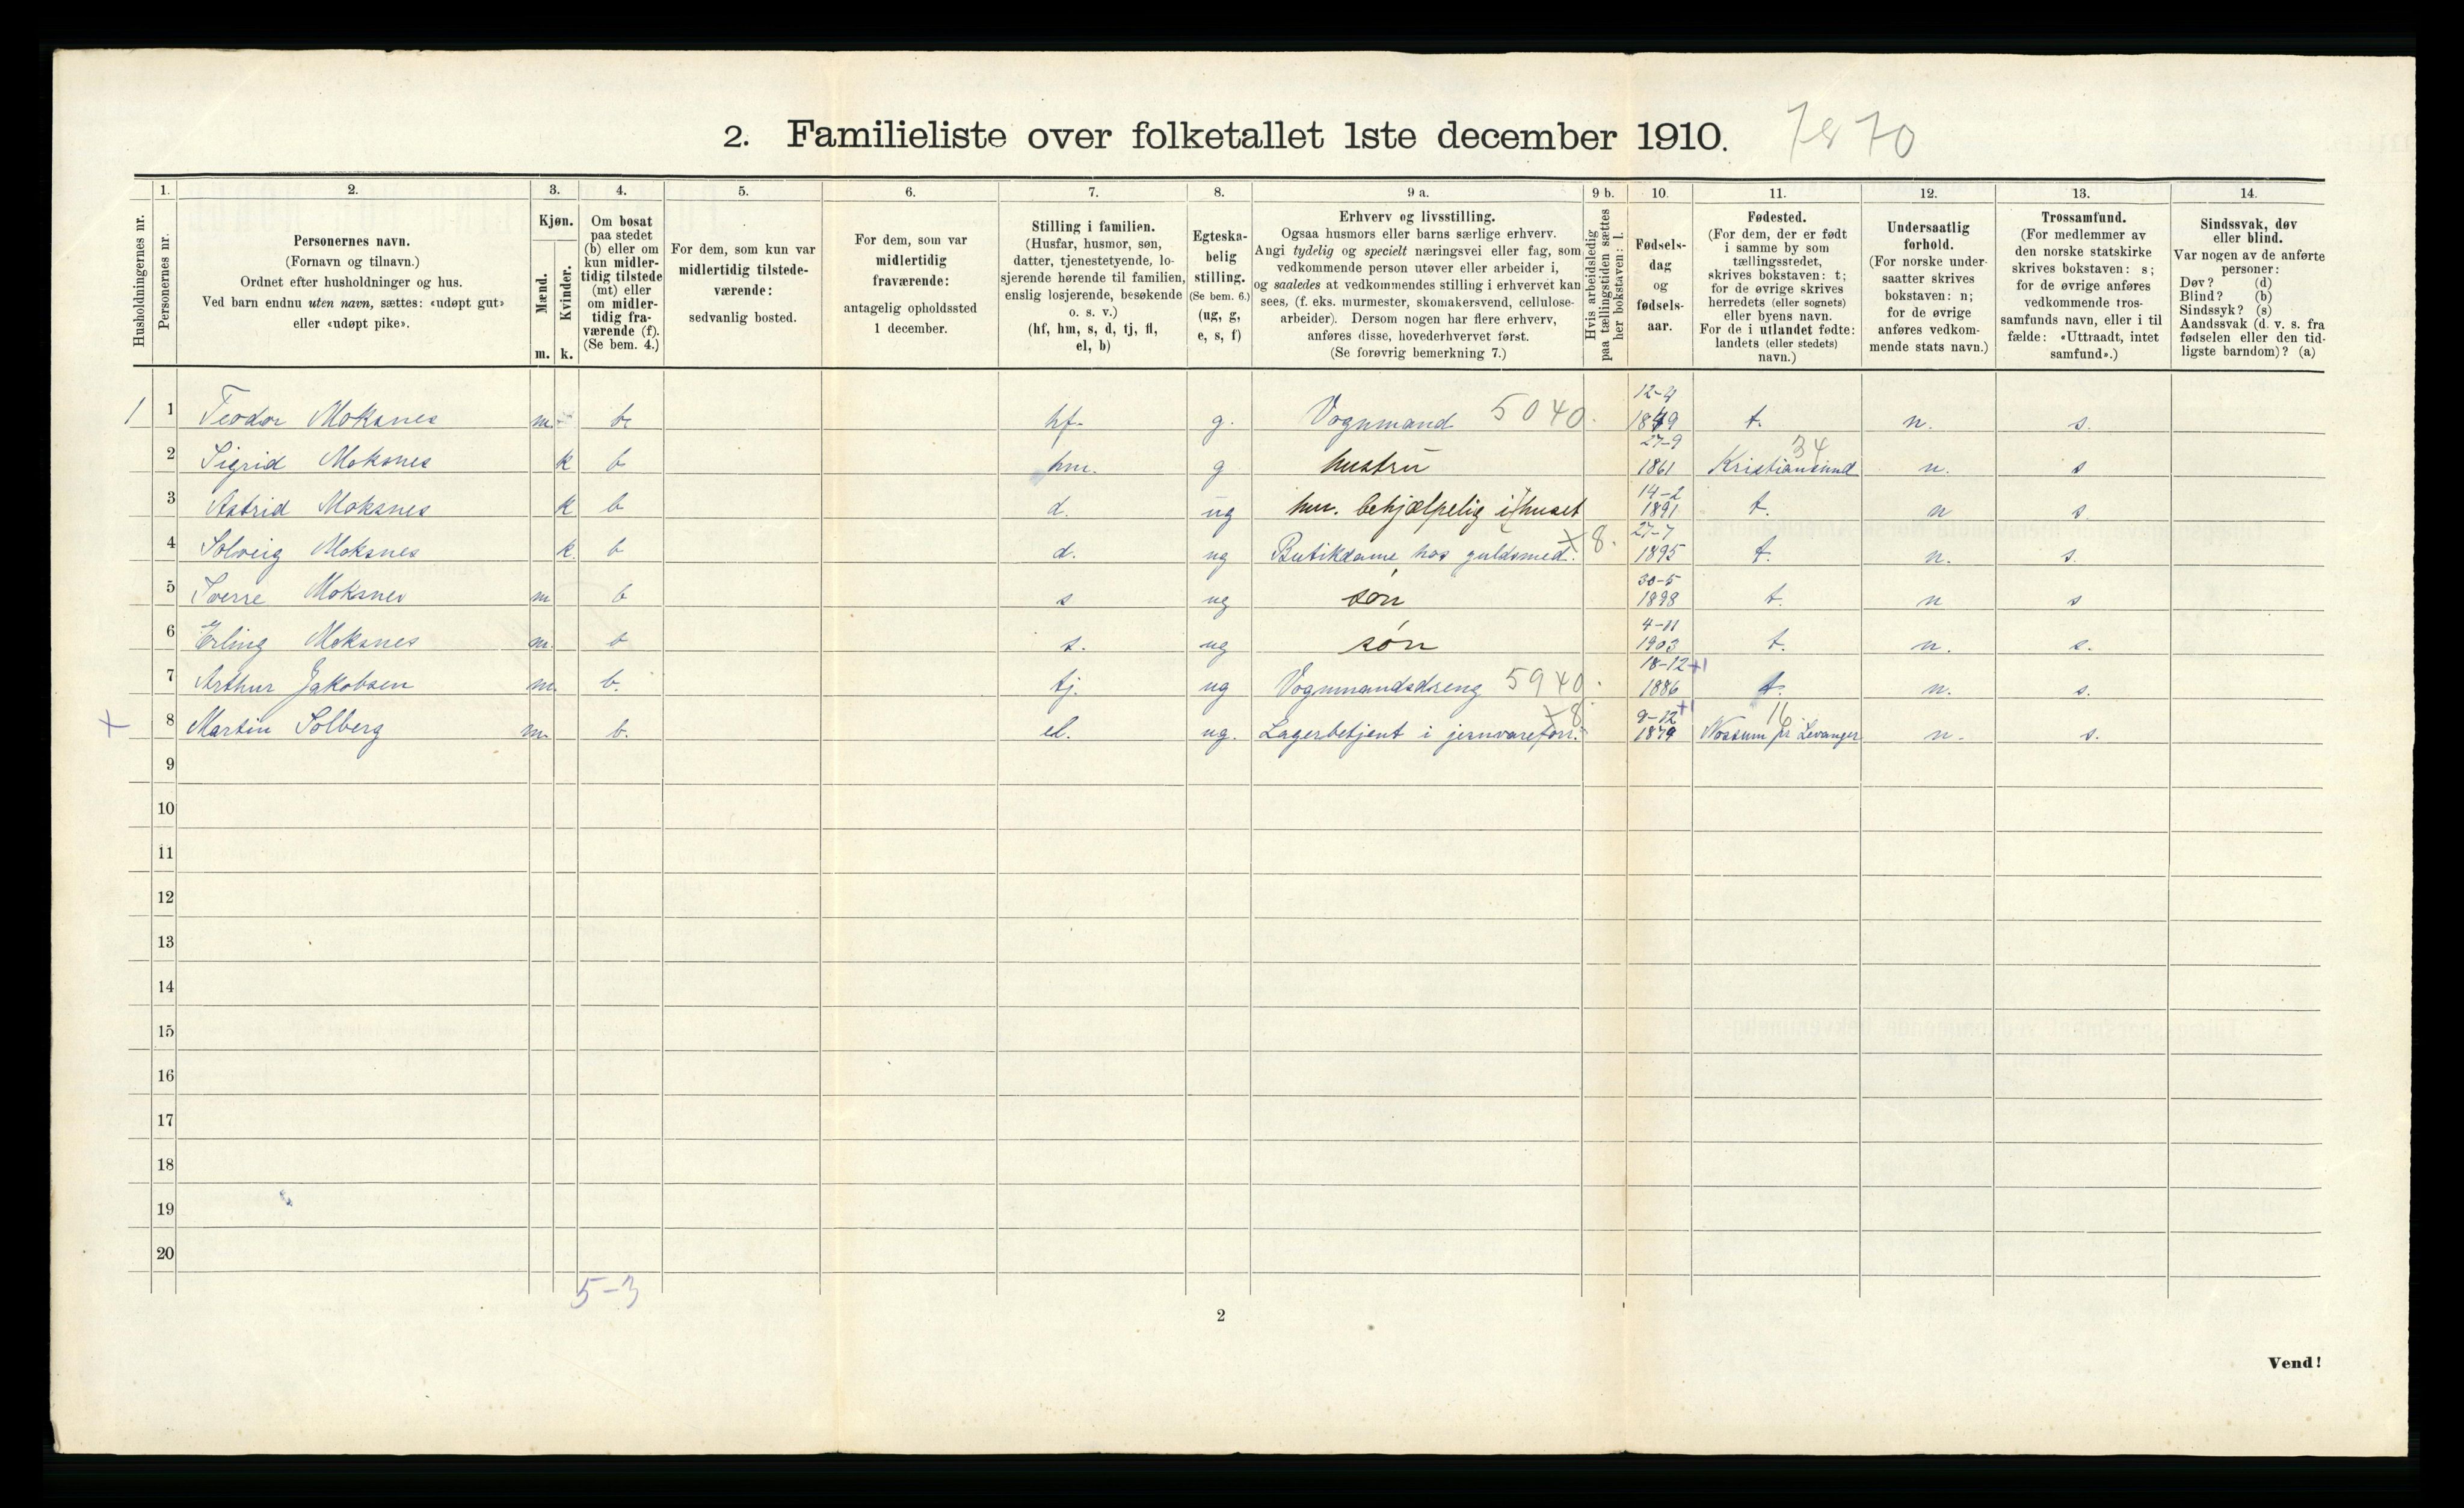 2. Familieliste over folketallet 1ste december 1910. 7870
1. 2. 3. 4. 5. 6. 7. 8. 9 a. 9 b. 10. 11. 12. 13. 14.
Husholdningernes nr.
Personernes nr.
Personernes navn.
(Fornavn og tilnavn.)
Ordnet efter husholdninger og hus.
Ved barn endnu uten navn, sættes: «udøpt gut»
eller «udøpt pike».
Kjøn.
Mænd.
Kvinder.
m. k.
Om bosat
paa stedet
(b) eller om
kun midler-
tidig tilstede
(mt) eller
om midler-
tidig fra-
værende (f).
(Se bem. 4.)
For dem, som kun var
midlertidig tilstede-
værende:
sedvanlig bosted.
For dem, som var
midlertidig
fraværende:
antagelig opholdssted
1 december.
Stilling i familien.
(Husfar, husmor, søn,
datter, tjenestetyende, lo-
sjerende hørende til familien,
enslig losjerende, besøkende
o. s. v.)
(hf, hm, s, d, tj, fl,
el, b)
Egteska-
belig
stilling.
(Se bem. 6.)
(ug, g,
e, s, f)
Erhverv og livsstilling.
Ogsaa husmors eller barns særlige erhverv.
Angi tydelig og specielt næringsvei eller fag, som
vedkommende person utøver eller arbeider i,
og saaledes at vedkommendes stilling i erhvervet kan
sees, (f. eks. murmester, skomakersvend, cellulose-
arbeider). Dersom nogen har flere erhverv,
anføres disse, hovederhvervet først.
(Se forøvrig bemerkning 7.)
Hvis arbeidsledig
paa tællingstiden sættes
her bokstaven: l.
Fødsels-
dag
og
fødsels-
aar.
Fødested.
(For dem, der er født
i samme by som
tællingsstedet,
skrives bokstaven: t;
for de øvrige skrives
herredets (eller sognets)
eller byens navn.
For de i utlandet fødte:
landets (eller stedets)
navn.)
Undersaatlig
forhold.
(For norske under-
saatter skrives
bokstaven: n;
for de øvrige
anføres vedkom-
mende stats navn.)
Trossamfund.
(For medlemmer av
den norske statskirke
skrives bokstaven: s;
for de øvrige anføres
vedkommende tros-
samfunds navn, eller i til
fælde: «Uttraadt, intet
samfund».)
Sindssvak, døv
eller blind.
Var nogen av de anførte
personer:
Døv? (d)
Blind? (b)
Sindssyk? (s)
Aandssvak (d. v. s. fra
fødselen eller den tid-
ligste barndom)? (a)
1 1 Teodor Moksnes m. b. hf. g. Vognmand 5040. 12-4 1849 t. n. s.
2 Sigrid Moksnes k b hm. g hustru 27-9 1861 34 Kristiansund n. s
3 Astrid Moksnes k b d. ug behjælpelig i huset 14-2 1891 t. n s
4 Solveig Moksnes k. b d. ug Butikdame hos guldsmed. x 8. 27-7 1895 t. n. s.
5 Sverre Moksnes m b s ug søn 30-5 1898 t. n s
6 Erling Moksnes m. b s. ug søn 4-11 1903 t. n. s.
7 Arthur Jakobsen m. b. tj. ug Vognmandsdreng 5940. 18-12 +1 1886 t. n. s.
x 8 Martin Solberg m. b. el. ug. Lagerbetjent i jernvareforr. x 8 9-12 +1 1879 16 pr Levanger n. s.
9
10
11
12
13
14
15
16
17
18
19
20
5-3
2
Vend!